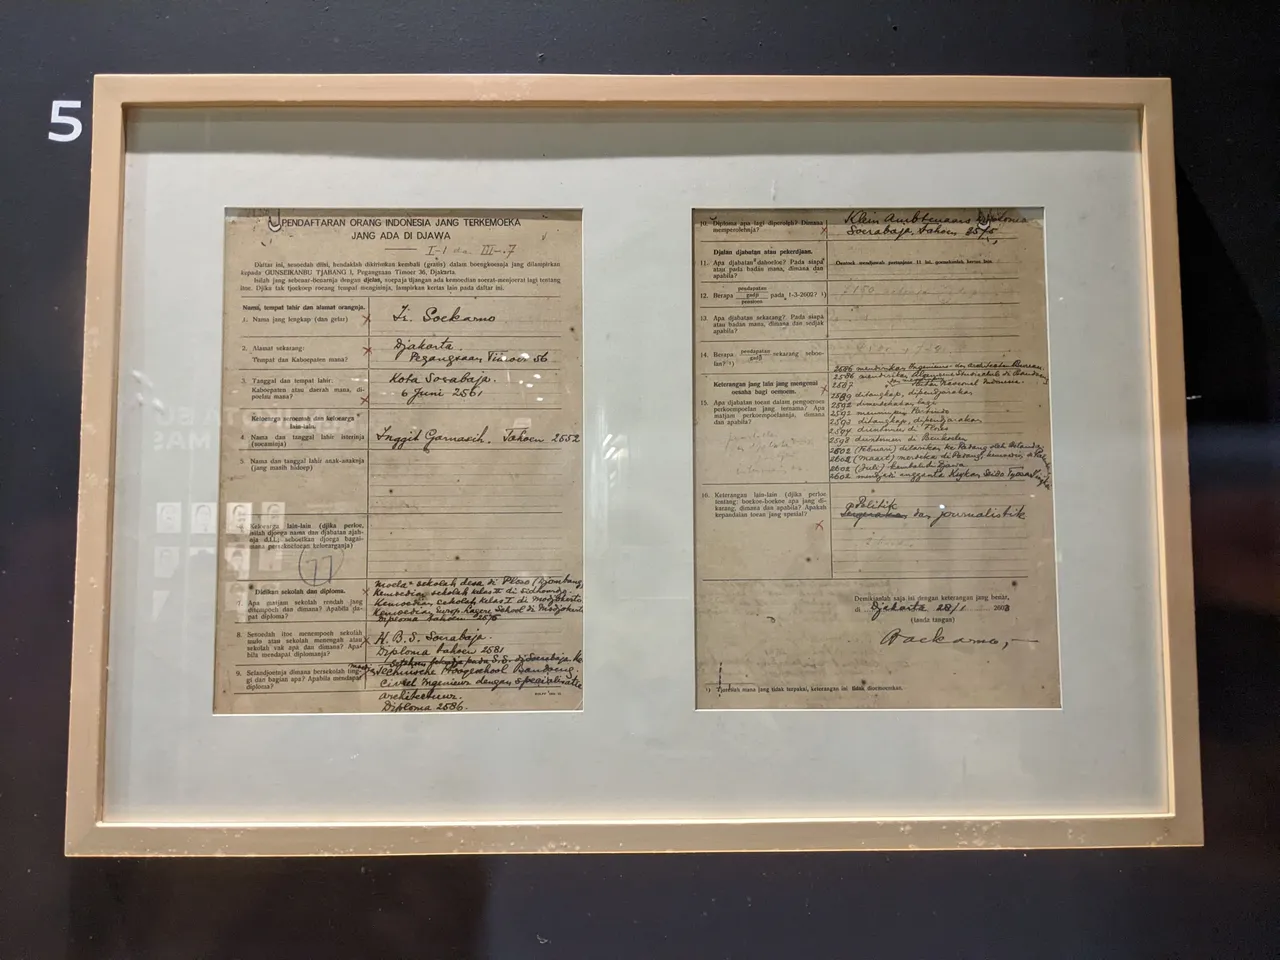 5
PENDAFTARAN ORANG INDONESIA JANG TERKEMOEKA
JANG ADA DI DJAWA
Daftar ini, sesoedah diisi, hendaklah dikirimkan kembali (gratis) dalam boengkoesnja jang dilampirkan
kepada GUNSEIKANBU TJABANG I, Pegangsaan Timoer 36, Djakarta.
Isilah jang sebenar-benarnja dengan djelas, soepaja djangan ada kemoedian soerat-menjoerat lagi tentang
itoe. Djika tak tjoekoep roeang tempat mengisinja, lampirkan kertas lain pada daftar ini.
Nama, tempat lahir dan alamat orangnja.
1. Nama jang lengkap (dan gelar)
Ir. Soekarno
2. Alamat sekarang:
Tempat dan Kaboepaten mana?
Djakarta.
Pegangsaan Timoer 56
3. Tanggal dan tempat lahir:
Kaboepaten atau daerah mana, di-
poelau mana?
Kota Soerabaja.
6 Juni 2561
Keloearga seroemah dan keloearga
lain-lain.
4. Nama dan tanggal lahir isterinja
(soeaminja)
Inggit Garnasih. Tahoen 2552
5. Nama dan tanggal lahir anak-anaknja
(jang masih hidoep)
6. Keloearga lain-lain (djika perloe,
77
Didikan sekolah dan diploma.
7. Apa matjam sekolah rendah jang
ditempoeh dan dimana? Apabila da-
pat diploma?
Moela² sekolah desa di Ploso (Djombang)
Kemoedian sekolah kelas II di Sidhoardjo
Kemoedian sekolah kelas I di Modjokerto
Kemoedian Europ. Lagere School di Modjokerto
Diploma tahoen 2575
8. Sesoedah itoe menempoeh sekolah
mulo atau sekolah menengah atau
sekolah vak apa dan dimana? Apa-
bila mendapat diplomanja?
H.B.S. Soerabaja.
Diploma tahoen 2581
9. Selandjoetnja dimana bersekolah ting-
gi dan bagian apa? Apabila mendapat
diploma?
Technische Hoogeschool Bandoeng.
Civiel Ingenieur dengan specialisatie
architectuur.
Diploma 2586.
10. Diploma apa lagi diperoleh? Dimana
memperolehnja?
Klein Ambtenaars Diploma
Soerabaja, tahoen 2575
Djalan djabatan atau pekerdjaan.
11. Apa djabatan dahoeloe? Pada siapa
atau pada badan mana, dimana dan
apabila?
12. Berapa pendapatan gadji pensioen pada 1-3-2602? ¹)
13. Apa djabatan sekarang? Pada siapa
atau badan mana, dimana dan sedjak
apabila?
14. Berapa pendapatan gadji sekarang seboe-
lan? ¹)
Keterangan jang lain jang mengenai
oesaha bagi oemoem.
15. Apa djabatan toean dalam pengoeroes
perkoempoelan jang ternama? Apa
matjam perkoempoelannja, dimana
dan apabila?
2586 mendirikan Ingenieurs- en architecten Bureau.
2586 mendirikan Algemene Studieclub di Bandoeng
2587 Partai Nasional Indonesia.
2589 ditangkap, dipendjarakan
2592 dimerdekakan lagi
2592 memimpin Partindo
2593 ditangkap, dipendjarakan
2594 diinternir di Flores
2598 diinternir di Benkoelen
2602 (Februari) dilarikan ke Padang oleh Belanda
2602 (Juli) kembali di Djawa
16. Keterangan lain-lain (djika perloe
tentang: boekoe-boekoe apa jang di-
karang, dimana dan apabila? Apakah
kepandaian toean jang spesial?
Politik
dan journalistik
Demikianlah saja isi dengan keterangan jang benar,
di Djakarta 28/1 2603
(tanda tangan)
Soekarno
¹) Tjoretlah mana jang tidak terpakai, keterangan ini tidak dioemoemkan.